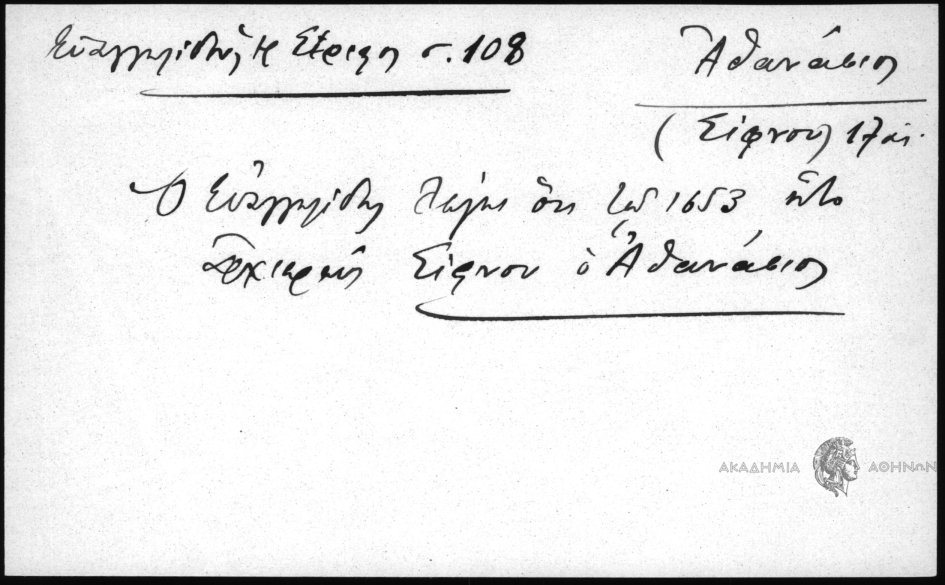 Εὐαγγελίδης Ἡ Σέριφος σ. 108
Ἀθανάσιος
(Σίφνου) 17 αι.
Ὁ Εὐαγγελίδης λέγει ὅτι τῷ 1653 ἦτο
ἀρχιερεὺς Σίφνου ὁ Ἀθανάσιος
ΑΚΑΔΗΜΙΑ ΑΘΗΝΩΝ